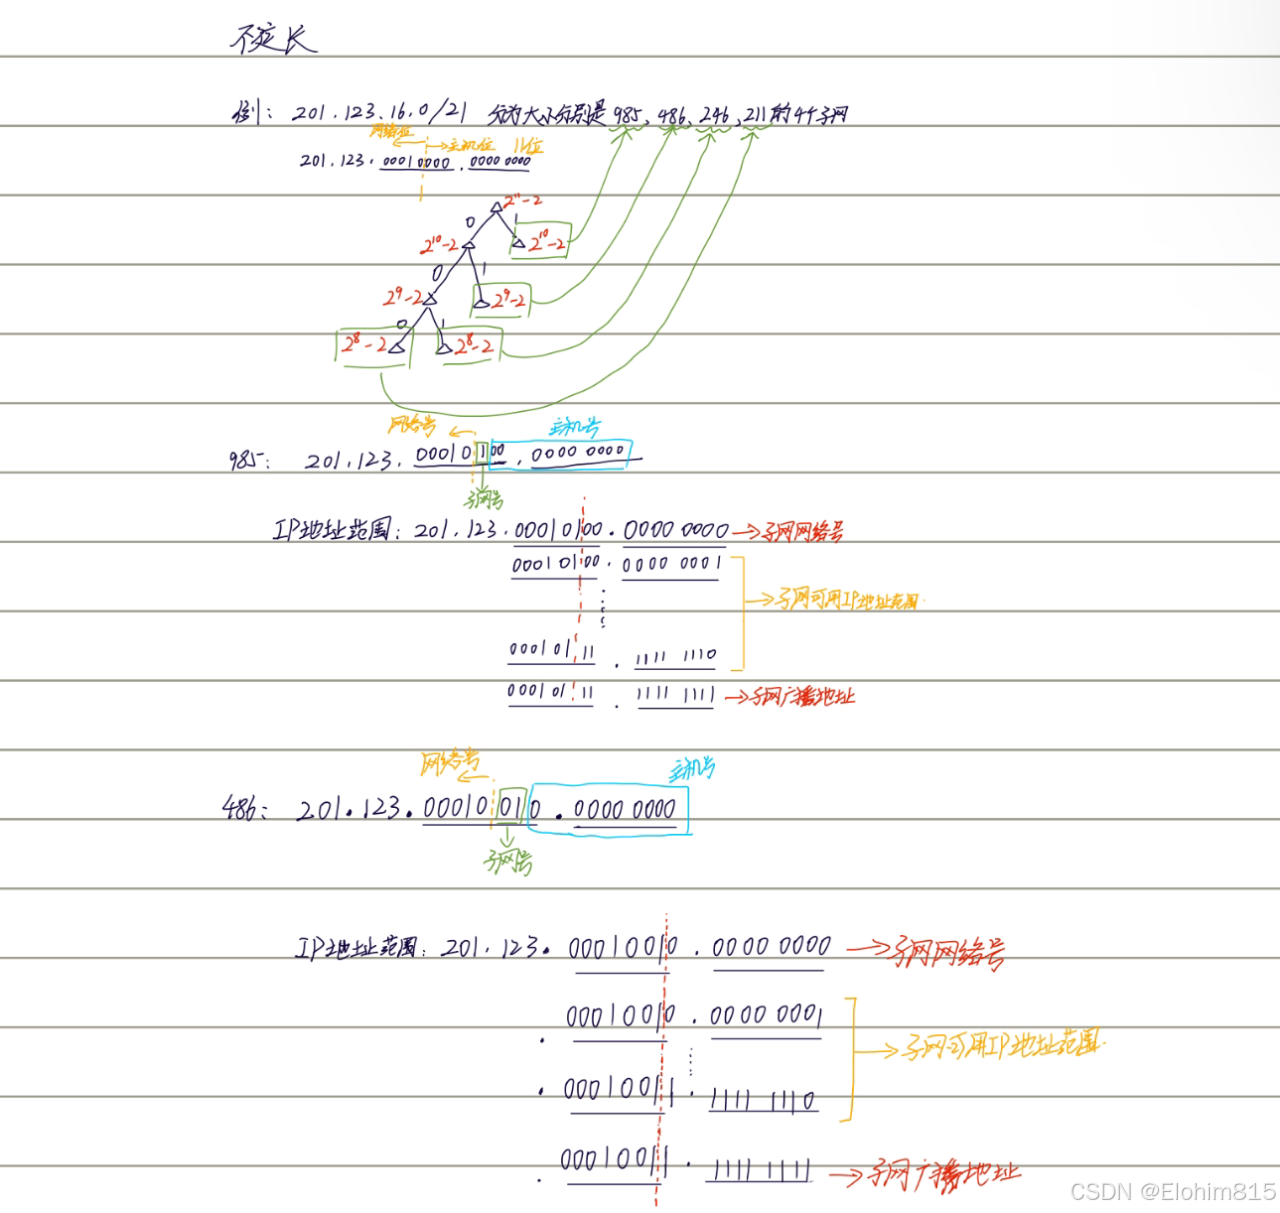 不定长
例：201.123.16.0/21 分为大小分别是985，486，246，211的4个子网
网络位 主机位 11位
201.123.00010000.0000 0000
2¹¹-2
0 1
2¹⁰-2 2¹⁰-2
0 1
2⁹-2 2⁹-2
0 1
2⁸-2 2⁸-2
网络号 主机号
985：201.123.00010100.0000 0000
子网号
IP地址范围：201.123.00010100.0000 0000→子网网络号
00010100.0000 0001
→子网可用IP地址范围.
00010111.1111 1110
00010111.1111 1111→子网广播地址
网络号 主机号
486：201.123.00010010.0000 0000
子网号
IP地址范围：201.123.00010010.0000 0000→子网网络号
.00010010.0000 0001
→子网可用IP地址范围.
.00010011.1111 1110
.00010011.1111 1111→子网广播地址
CSDN @Elohim815